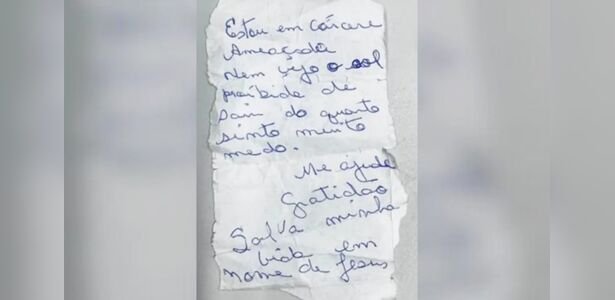 Estou em cárcere
Ameaçada
Nem vejo o sol
proibida de
sair do quarto
sinto muito
medo.
Me ajude
Gratidão
Salva minha
vida em
nome de Jesus